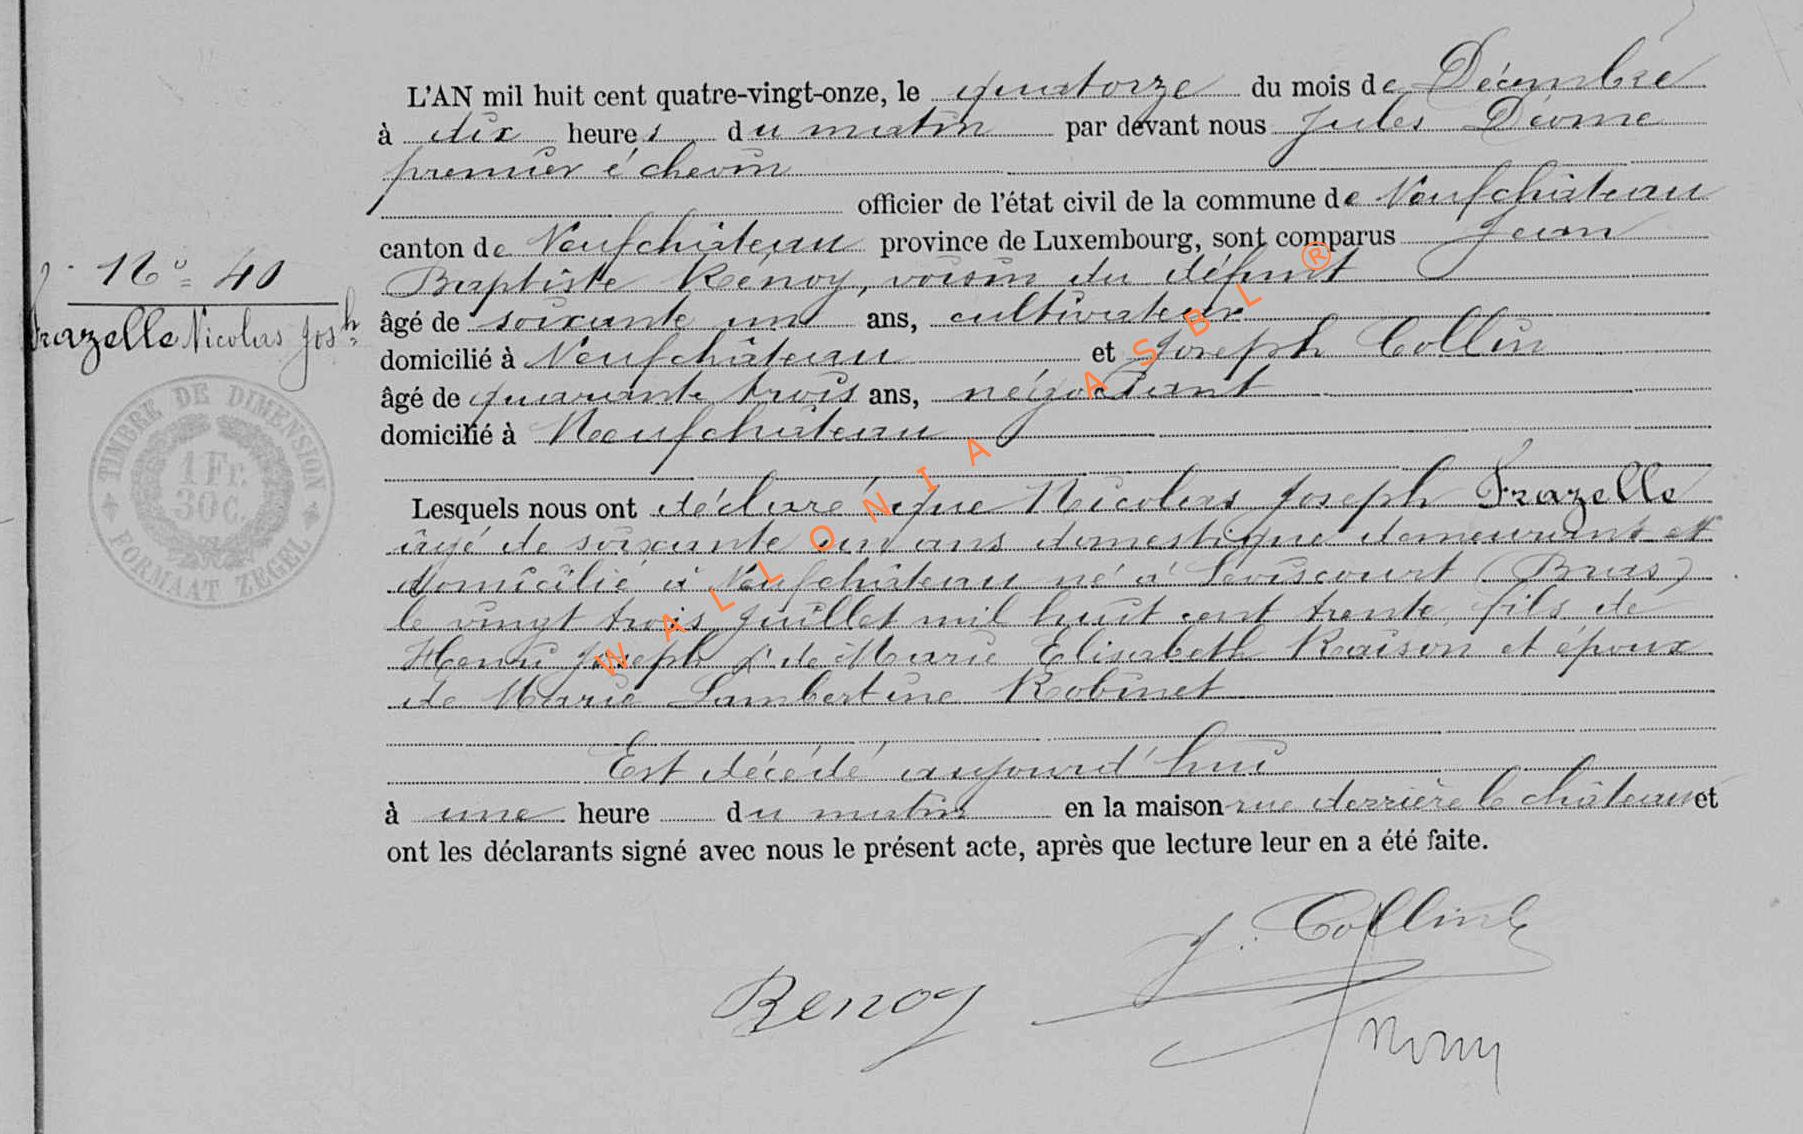 L'AN mil huit cent quatre-vingt-onze, le quatorze du mois de Décembre
à dix heures du matin par devant nous Jules Déome
premier échevin
officier de l'état civil de la commune de Neufchâteau
canton de Neufchâteau province de Luxembourg, sont comparus Jean
Baptiste Rénoy, voisin du défunt
âgé de soixante un ans, cultivateur
domicilié à Neufchâteau et Joseph Collin
âgé de quarante trois ans, négociant
domicilié à Neufchâteau
Lesquels nous ont déclaré que Nicolas Joseph Frazelle
âgé de soixante un ans domestique demeurant et
domicilié à Neufchâteau né à Séviscourt (Bras)
le vingt trois Juillet mil huit cent trente, fils de
Henri Joseph & de Marie Elisabeth Raison et époux
de Marie Lambertine Robinet
Est décédé aujourd'hui
à une heure du matin en la maison rue derrière le château et
ont les déclarants signé avec nous le présent acte, après que lecture leur en a été faite.
No 40
Frazelle Nicolas Josh
TIMBRE DE DIMENSION
1 Fr.
30 C.
FORMAAT ZEGEL
WALLONIA ASBL ®
J. Collin
Renoy